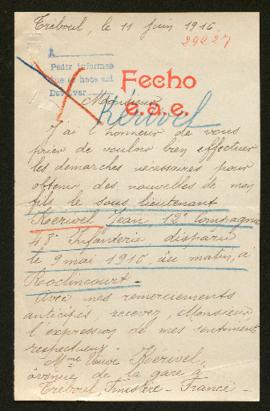 Tréboul, le 11 Juin 1916
29227
Pedir informes
que se hace así
Devolver
Fecho
E.a.e.
Monsieur
Kerivel
J'ai l'honneur de vous
prier de vouloir bien effectuer
les démarches nécessaires pour
obtenir des nouvelles de mon
fils le sous lieutenant
Kerivel Jean, 12e Compagnie
48e Infanterie disparu
le 9 mai 1916 au matin, à
Roclincourt.
Avec mes remerciements
anticipés recevez, Monsieur
l'expression de mes sentiments
respectueux.
Mme Veuve Kerivel,
avenue de la gare à
Tréboul, Finistère - France -